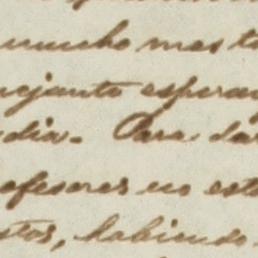 mucho mas t
mejante espera
dia. Para da
ofesores no est
stos, habiendo